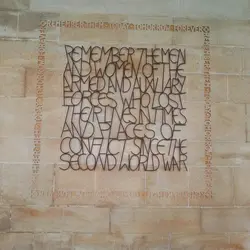 REMEMBER THEM TODAY TOMORROW FOREVER
REMEMBER THE MEN
AND WOMEN OF THE
ARMED AND AUXILIARY
FORCES WHO LOST
THEIR LIVES IN TIMES
AND PLACES OF
CONFLICT SINCE THE
SECOND WORLD WAR